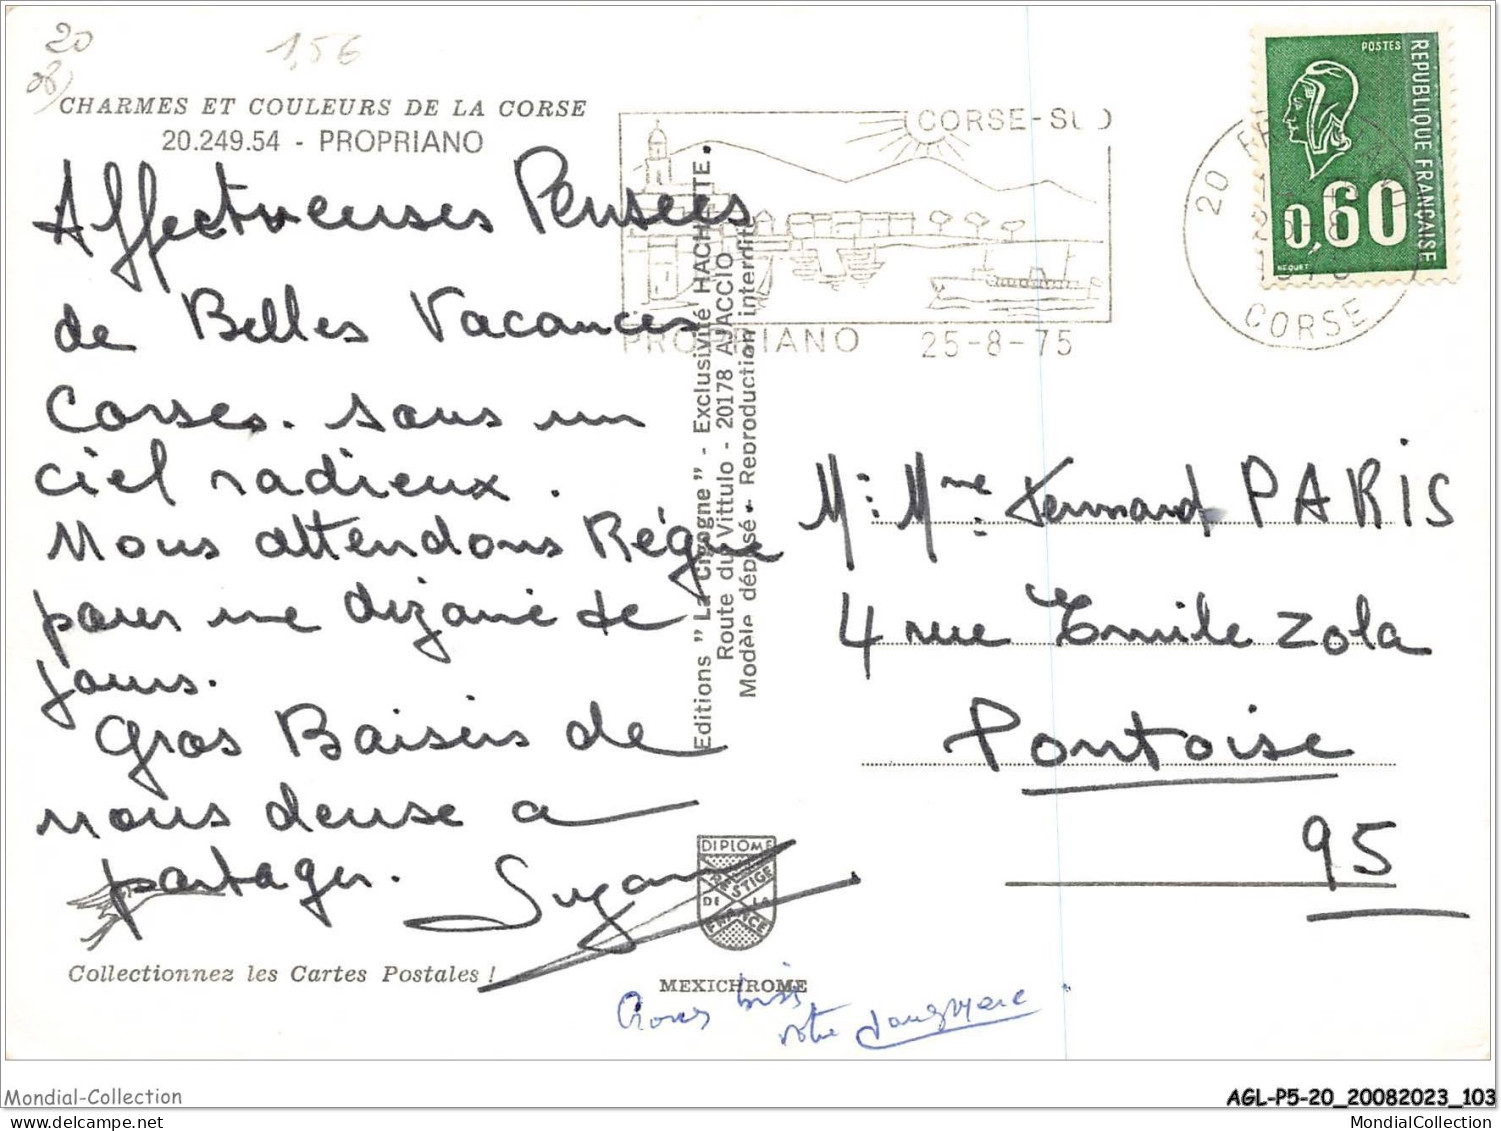 20
1,56
CHARMES ET COULEURS DE LA CORSE
20.249.54 - PROPRIANO
Affectueuses Pensées
de Belles Vacances
Corses. sous un
ciel radieux.
Nous attendons Régine
pour une dizaine de
jours.
Gros Baisers de
nous deux à
partager.
Collectionnez les Cartes Postales !
Editions " La Cigogne " - Exclusivité HACHETTE.
Route du Vittulo - 20178 AJACCIO
Modèle déposé - Reproduction interdite
DIPLOME
PRESTIGE
DE LA
FRANCE
MEXICHROME
Gros
votre
CORSE-SUD
PROPRIANO 25-8-75
20
CORSE
POSTES
REPUBLIQUE FRANÇAISE
0,60
BEQUET
M: Mme: Fernand PARIS
4 rue Emile Zola
Pontoise
95
Mondial-Collection
AGL-P5-20_20082023_103
MondialCollection